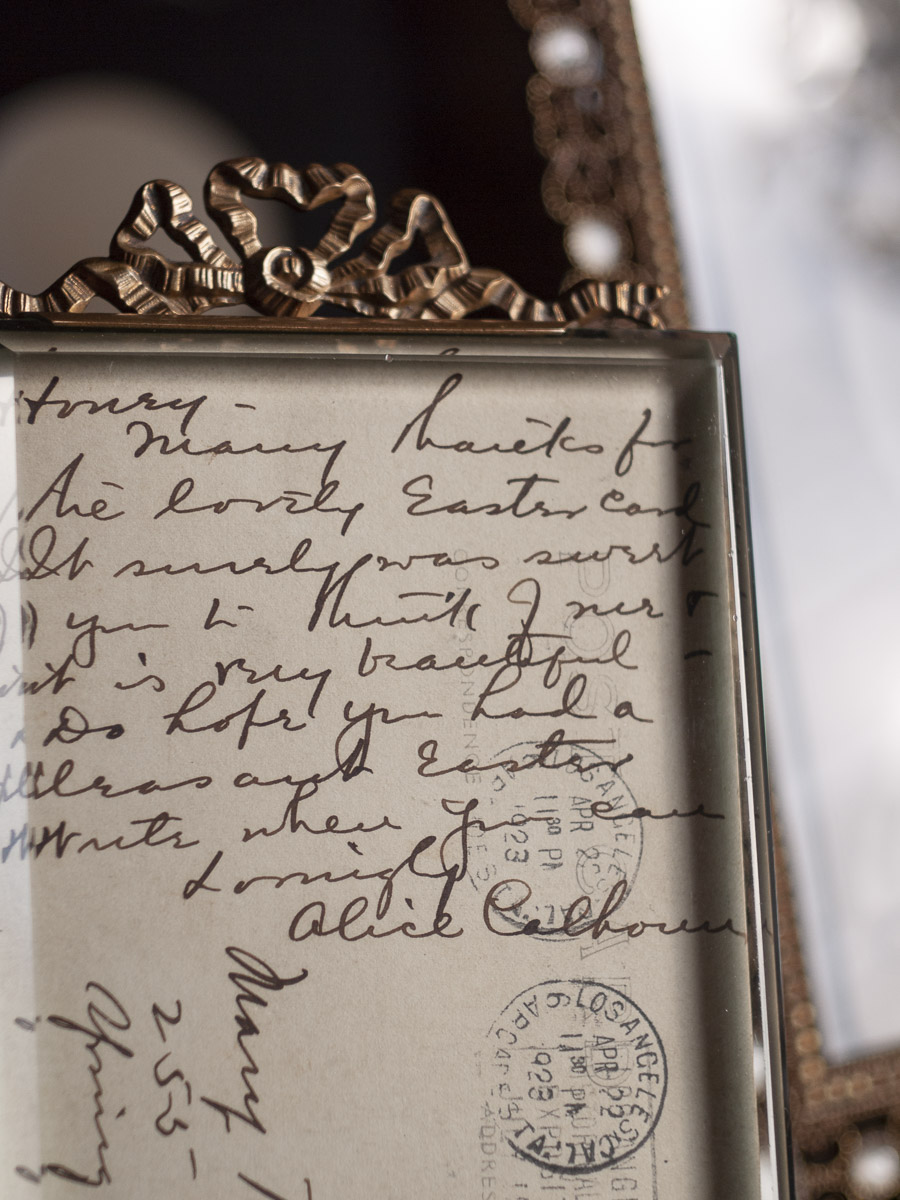 Honey -
Many thanks for
the lovely Easter card
It surely was sweet
you to think of me &
it is very beautiful -
Do hope you had a
Pleasant Easter
Write when you can
Lovingly
Alice Calhoun
CORRESPONDENCE
POST
LOS ANGELES
APR
11 30 PM
1923
CAL.
LOS ANGELES
APR 22
11 30 PM
1923
CAL.
ADDRESS
Mary
255 -
Spring